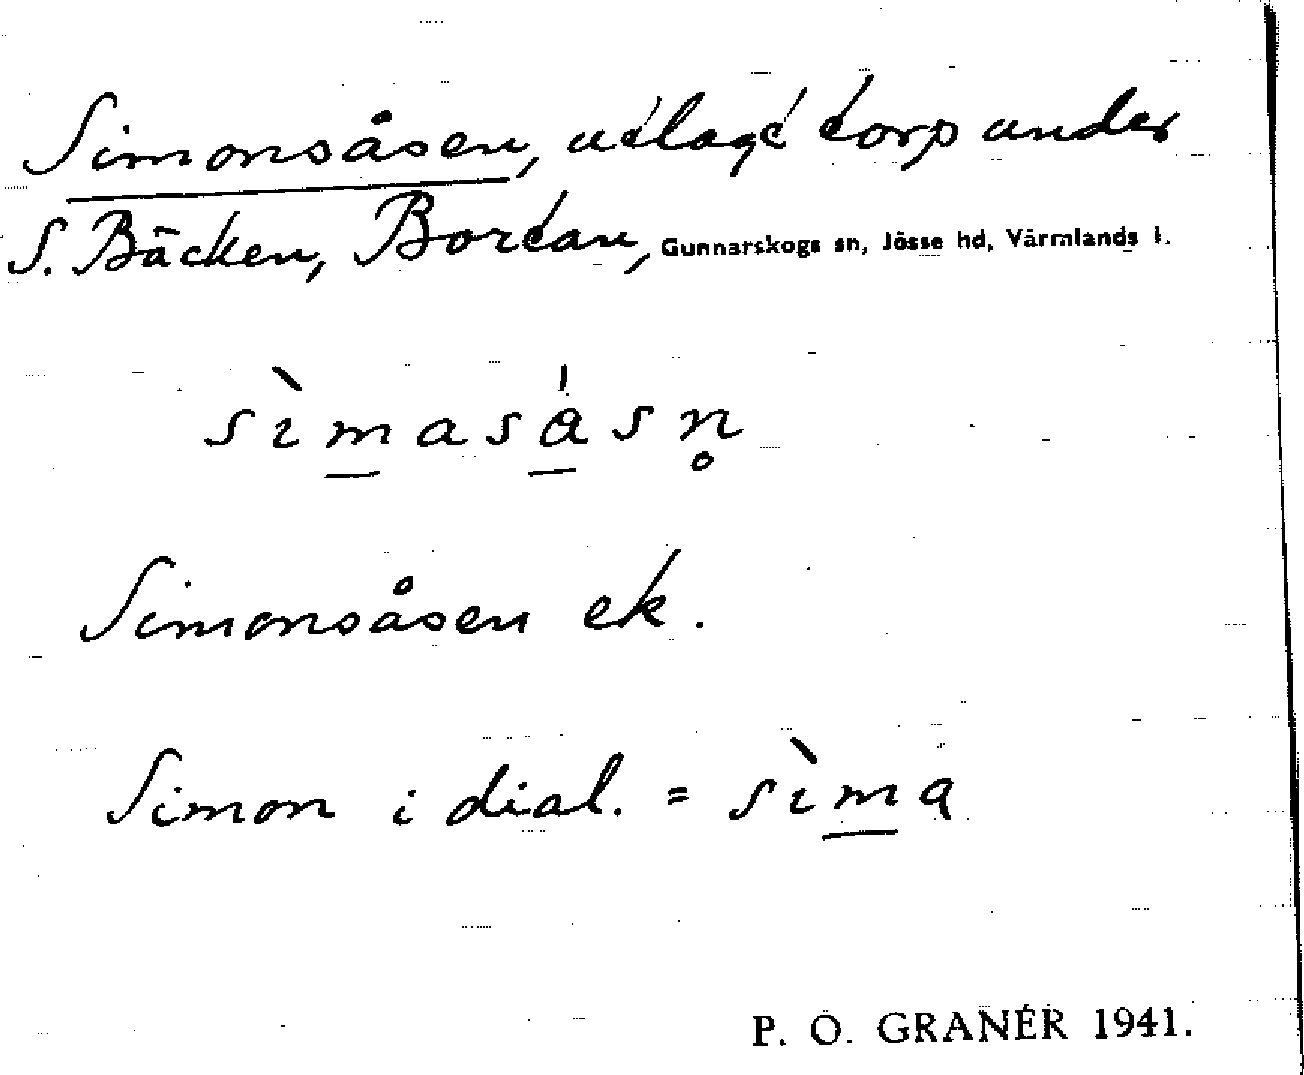 Simonsåsen, utlagt torp under
S. Bäcken, Bortan, Gunnarskogs sn, Jösse hd, Värmlands l.
sìmasásn̥
Simonsåsen ek.
Simon i dial. = sìma
P. O. GRANÉR 1941.